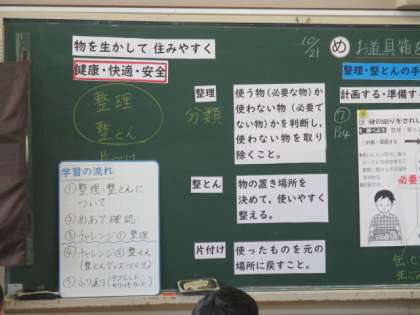 物を生かして 住みやすく
健康・快適・安全
整理
整とん
学習の流れ
①整理・整とんに
ついて
②めあて確認
③チャレンジ① 整理
④チャレンジ② 整とん
(整とんグッズづくり)
⑤ふり返り
整理
分類
使う物(必要な物)か
使わない物(必要で
ない物)かを判断し、
使わない物を取り
除くこと。
整とん
物の置き場所を
決めて、使いやすく
整える。
片付け
使ったものを元の
場所に戻すこと。
10/21
め お道具箱を
整理・整とんの手
計画する・準備する
⑦
P.4
身の回りをきれい
必要